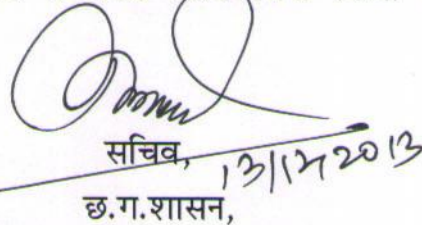 सचिव, 13/12/2013
छ.ग.शासन,